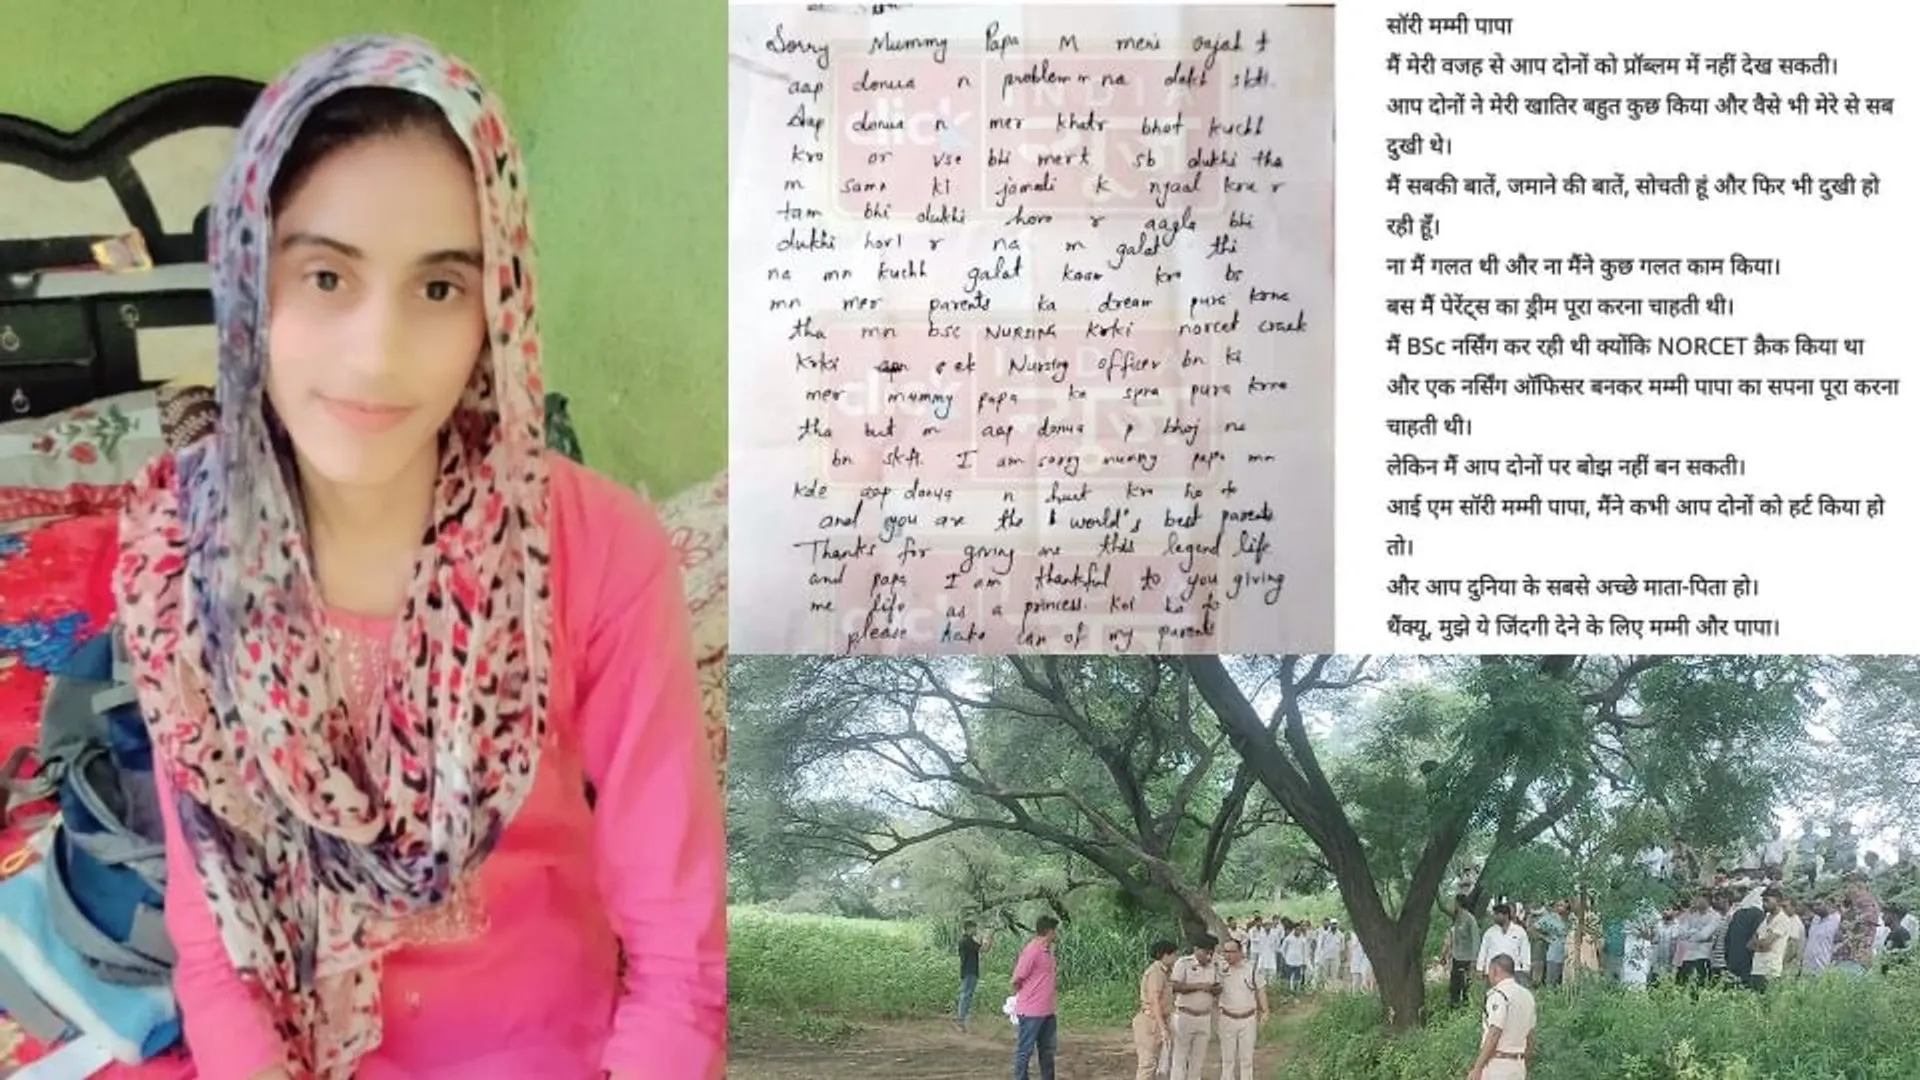 Sorry Mummy Papa M meri vajah t
aap donua n problem m na dekh skti.
Aap donua n mer khatr bhot kuchh
kro or vse bhi mert sb dukhi tha
m samn ki jamali k kru r
tam bhi dukhi horo r aagla bhi
dukhi horl r na m galat thi
na mn kuchh galat kaam kro bs
mn mer parents ka dream pura krna
tha mn bsc NURSING krki norcet crack
krki apn eek Nursing officer bn ki
mer mummy papa ka spna pura krna
tha but m aap donua p bhoj na
bn skti. I am sorry mummy papa mn
kde aap donua n hurt kro ho to
and you are the world's best parents
Thanks for giving me this legend life
and papa I am thankful to you giving
me life as a princess. koi ho to
please take can of my parents
INDIA
click
न्यूज़
INDIA
click
सॉरी मम्मी पापा
मैं मेरी वजह से आप दोनों को प्रॉब्लम में नहीं देख सकती।
आप दोनों ने मेरी खातिर बहुत कुछ किया और वैसे भी मेरे से सब
दुखी थे।
मैं सबकी बातें, जमाने की बातें, सोचती हूं और फिर भी दुखी हो
रही हूँ।
ना मैं गलत थी और ना मैंने कुछ गलत काम किया।
बस मैं पेरेंट्स का ड्रीम पूरा करना चाहती थी।
मैं BSc नर्सिंग कर रही थी क्योंकि NORCET क्रैक किया था
और एक नर्सिंग ऑफिसर बनकर मम्मी पापा का सपना पूरा करना
चाहती थी।
लेकिन मैं आप दोनों पर बोझ नहीं बन सकती।
आई एम सॉरी मम्मी पापा, मैंने कभी आप दोनों को हर्ट किया हो
तो।
और आप दुनिया के सबसे अच्छे माता-पिता हो।
थैंक्यू, मुझे ये जिंदगी देने के लिए मम्मी और पापा।